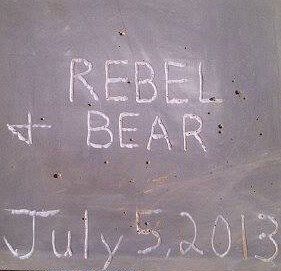 REBEL
& BEAR
July 5, 2013